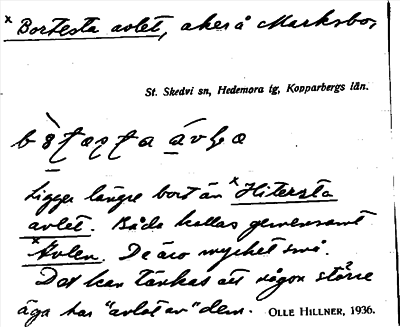 x Bortesta avlet, åker å Marksbo,
St. Skedvi sn, Hedemora tg, Kopparbergs län.
Ligger längre bort än x Hitersta
avlet. Båda kallas gemensamt
x Avlen. De äro mycket små.
Det kan tänkas att någon större
äga har "avlat av" dem. OLLE HILLNER, 1936.